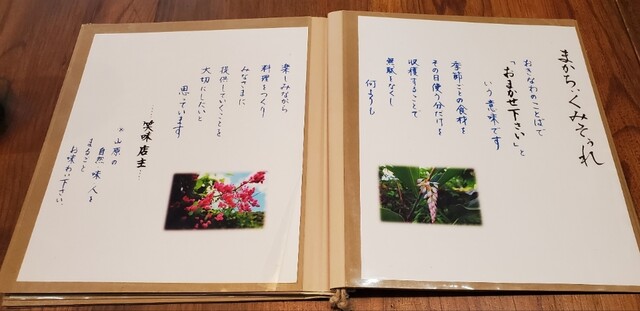 まかちくみそぅれ
おきなわのことばで
「おまかせ下さい」と
いう意味です
季節ごとの食材を
その日使う分だけを
収穫することで
無駄なくし
何よりも
楽しみながら
料理をつくり
みなさまに
提供していくことを
大切にしたいと
思っています
…笑味店主…
*山原の
自然 味 人を
まるごと
お味わい下さい。